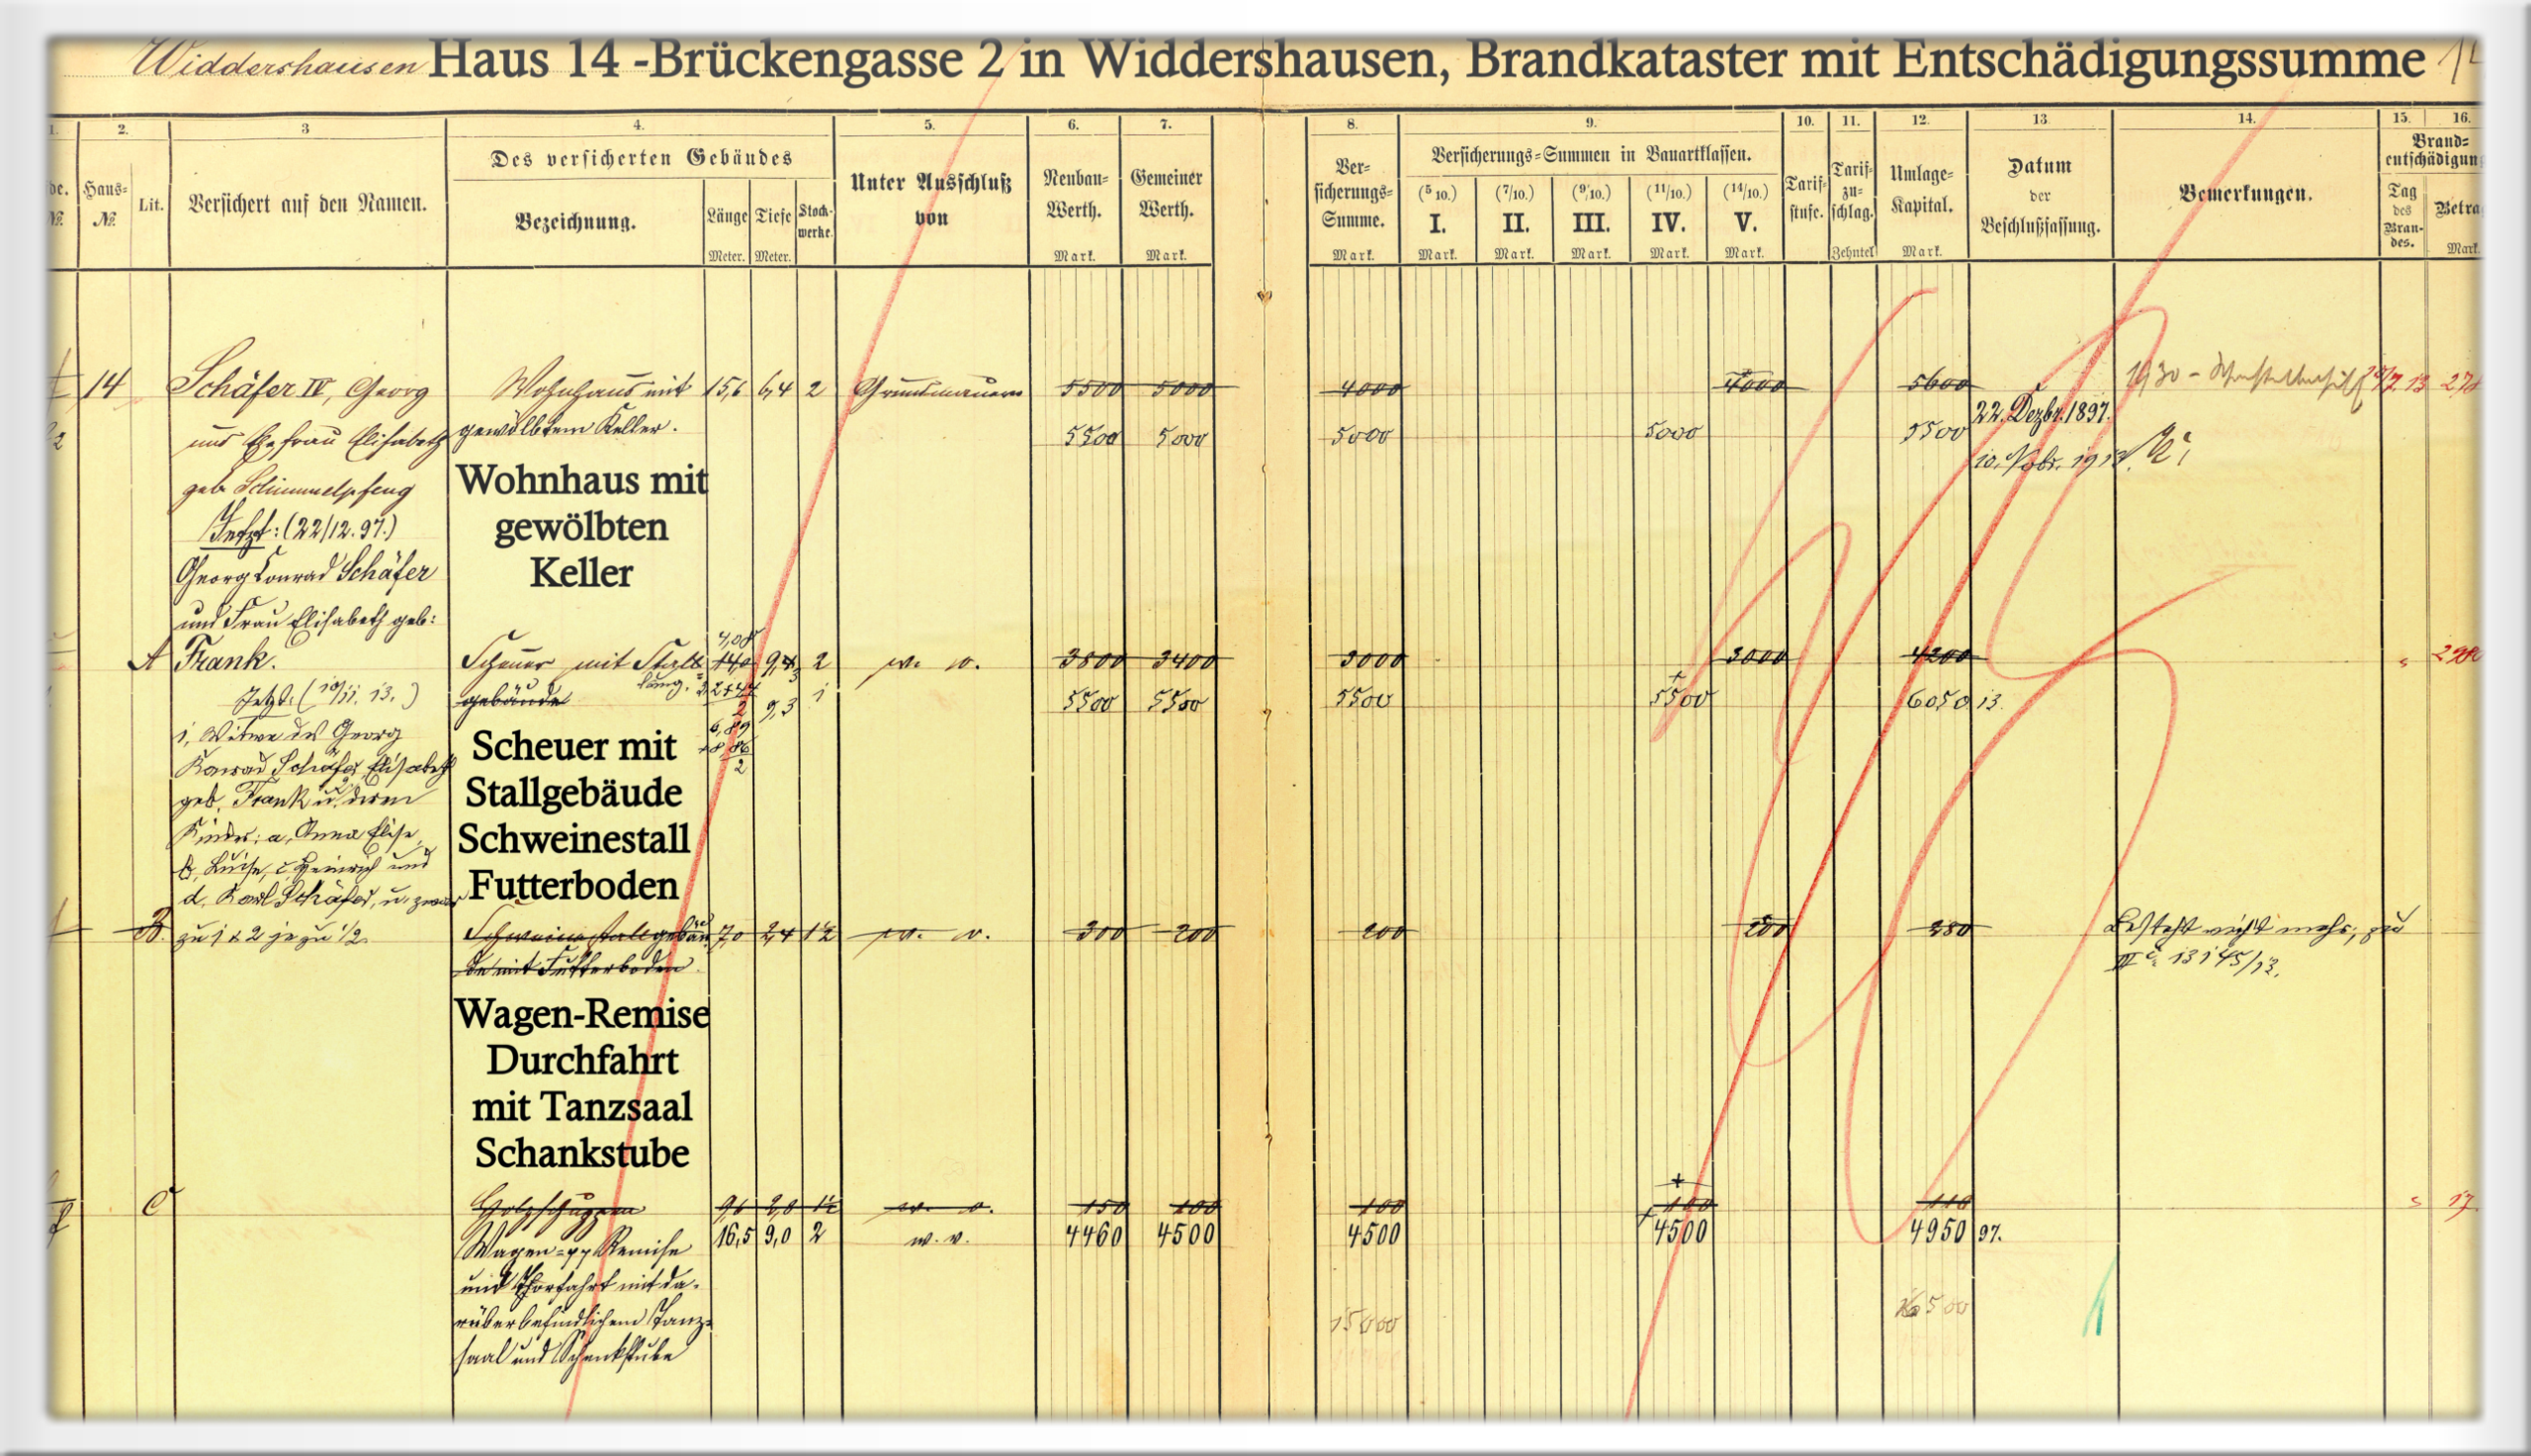 Widdershausen Haus 14 -Brückengasse 2 in Widdershausen, Brandkataster mit Entschädigungssumme
1. 2. 3 4. 5. 6. 7. 8. 9. 10. 11. 12. 13. 14. 15. 16.
Haus-
№
Lit.
Versichert auf den Namen.
Des versicherten Gebäudes
Bezeichnung.
Länge
Meter.
Tiefe
Meter.
Stock-
werke.
Unter Ausschluß
von
Neubau-
Werth.
Mark.
Gemeiner
Werth.
Mark.
Ver-
sicherungs-
Summe.
Mark.
Versicherungs-Summen in Bauartklassen.
(5/10.) (7/10.) (9/10.) (11/10.) (14/10.)
I. II. III. IV. V.
Mark. Mark. Mark. Mark. Mark.
Tarif-
stufe.
Tarif-
zu-
schlag.
Zehntel
Umlage-
Kapital.
Mark.
Datum
der
Beschlußfassung.
Bemerkungen.
Brand-
entschädigun
Tag
des
Bran-
des.
Betra
Mark.
14 Schäfer IV, Georg Wohnhaus mit 15,6 6,4 2 Grundmauern 5500 5000 4000 4000 5600
und Ehefrau Elisabeth gewölbtem Keller. 5500 5000 5000 5000 5500 22. Dezbr. 1897.
geb. Schimmelpfeng
Jetzt: (22/12.97.)
Georg Conrad Schäfer
und Frau Elisabeth geb:
Wohnhaus mit
gewölbten
Keller
A Frank. Scheuer mit Stall- 9,4 2 w. v. 3800 3400 3000 3000 4200
Jetzt: (10/11. 13.) gebäude 9,3 1 5500 5500 5500 5500 6050 13.
1, Witwe des Georg
Konrad Schäfer, Elisabeth
geb. Frank u. 2, deren
Kinder: a, Anna Elise,
b, Luise, c, Heinrich und
d. Karl Schäfer, u. zwar
zu 1 & 2 je zu 1/2.
Scheuer mit
Stallgebäude
Schweinestall
Futterboden
B. Schweinestallgebäu- 7,0 2,4 1½ w. v. 300 200 200 200 280 Besteht nicht mehr, zu
de mit Futterboden. 13145/13.
Wagen-Remise
Durchfahrt
mit Tanzsaal
Schankstube
C Holzschuppen w. v. 150 100 100 100 110 17.
Wagen- Remise 16,5 9,0 2 w. v. 4460 4500 4500 4500 4950 97.
und Thorfahrt mit da-
rüber befindlichem Tanz-
saal und Schenkstube
15000 16500